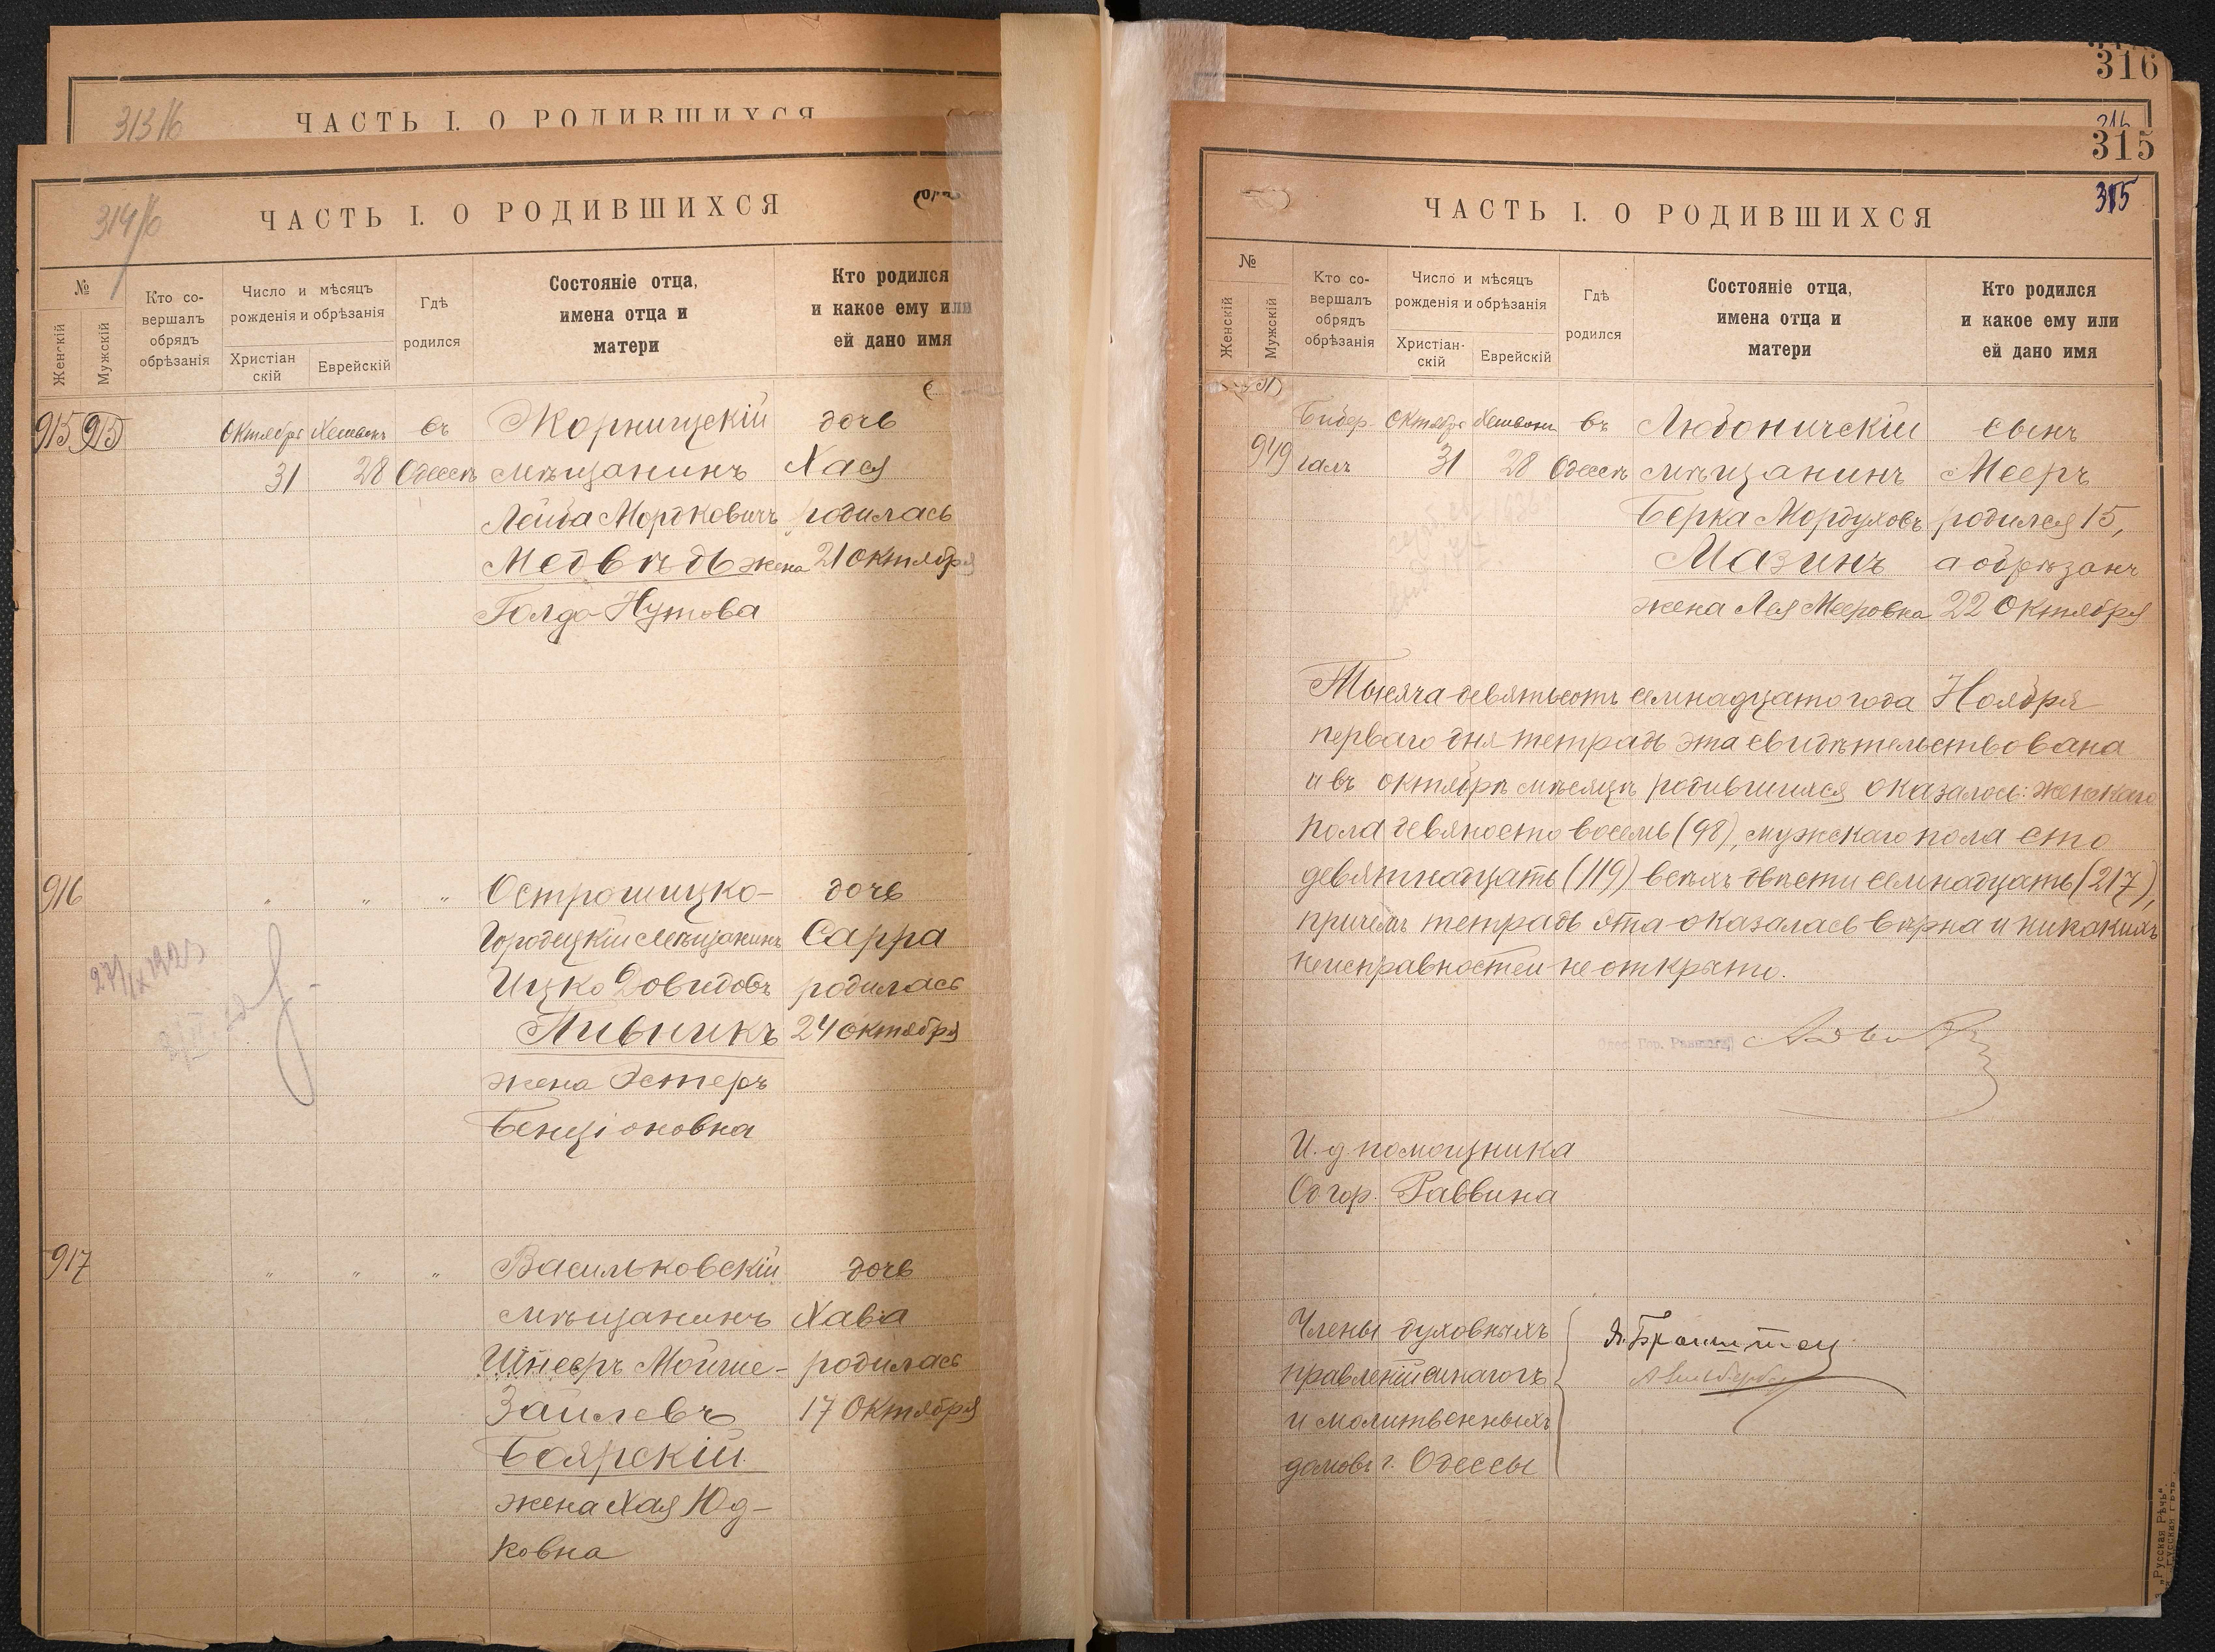 313/6
ЧАСТЬ I. О РОДИВШИХСЯ
314/6
ЧАСТЬ I. О РОДИВШИХСЯ
№
Женскій
Мужскій
Кто со-
вершалъ
обрядъ
обрѣзанія
Число и мѣсяцъ
рожденія и обрѣзанія
Христіан
скій
Еврейскій
Гдѣ
родился
Состояніе отца,
имена отца и
матери
Кто родился
и какое ему или
ей дано имя
915 915 Октября Хешвонъ въ Жорницскій дочь
31 28 Одессѣ мѣщанинъ Хася
Лейба Мордковичъ родилась
Медвѣдь жена 21 Октября
Голда Нутова
916 " " " Острошицко- дочь
Городецкій Мѣщанинъ Сарра
Ицко Довидовъ родилась
Пивникъ 24 октября
жена Эстеръ
Бенціоновна
917 " " " Васильковскій дочь
мѣщанинъ Хава
Шнееръ Мойше- родилась
Зайлевъ 17 Октября
Боярскій
жена Хая Юд-
ковна
316
316
315
315
ЧАСТЬ I. О РОДИВШИХСЯ
№
Женскій
Мужскій
Кто со-
вершалъ
обрядъ
обрѣзанія
Число и мѣсяцъ
рожденія и обрѣзанія
Христіан-
скій
Еврейскій
Гдѣ
родился
Состояніе отца,
имена отца и
матери
Кто родился
и какое ему или
ей дано имя
Бидер. Октября Хешвонъ въ Любоничскій сынъ
949 галъ 31 28 Одессѣ мѣщанинъ Мееръ
Берка Мордуховъ родился 15,
Мазинъ а обрѣзанъ
жена Лея Мееровна 22 Октября
Тысяча девятьсотъ семнадцатого года Ноября
перваго дня тетрадь эта свидѣтельствована
и въ октябрѣ мѣсяцѣ родившихся оказалось: женскаго
пола девяносто восемь (98), мужскаго пола сто
девятнадцать (119) всѣхъ двѣсти семнадцать (217),
причемъ тетрадь эта оказалась вѣрна и никакихъ
неисправностей не открыто.
Одес. Гор. Раввинъ
И. д помощника
Од гор. Раввина
Члены духовныхъ
правленій синагогъ
и молитвенныхъ
домовъ г. Одессы
„Русская Рѣчь“